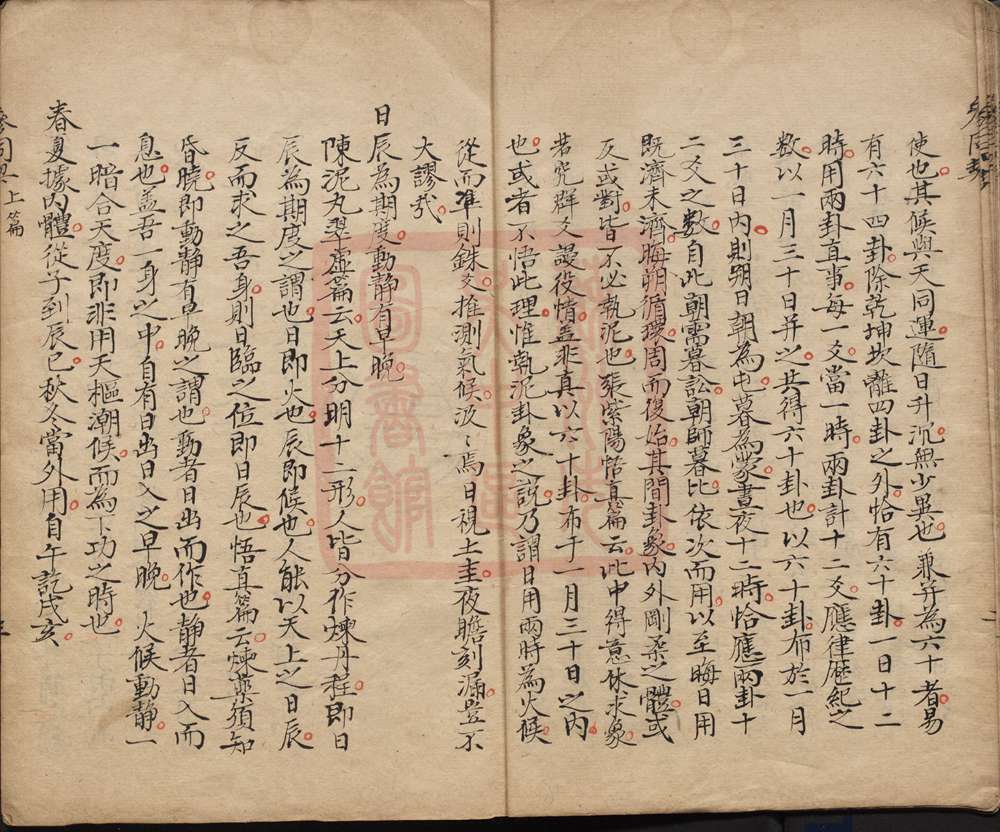 使也其候與天同運隨日升沉無少異也兼并為六十者易
有六十四卦除乾坤坎離四卦之外恰有六十卦一日十二
時用兩卦直事每一爻當一時兩卦計十二爻應律歷紀之
數以一月三十日并之共得六十卦也以六十卦布於一月
三十日內則朔日朝為屯暮為蒙晝夜十二時恰應兩卦十
二爻之數自此朝需暮訟朝師暮比依次而用以至晦日用
既濟未濟晦朔循環周而復始其間卦象內外剛柔之體或
反或對皆不必執泥也張紫陽悟真篇云此中得意休求象
若究群爻謾役情蓋非真以六十卦布于一月三十日之內
也或者不悟此理惟執泥卦象之說乃謂日用兩時為火候
從而準則銖爻推測氣候汲〻焉日視土圭夜瞻刻漏豈不
大謬哉
日辰為期度動靜有早晚
陳泥丸翠虛篇云天上分明十二形人皆分作煉丹程即日
辰為期度之謂也日即火也辰即候也人能以天上之日辰
反而求之吾身則日臨之位即日辰也悟真篇云煉藥須知
昏曉即動靜有早晚之謂也動者日出而作也靜者日入而
息也蓋吾一身之中自有日出日入之早晚火候動靜一
一暗合天度即非用天樞潮候而為下功之時也
春夏據內體從子到辰巳秋冬當外用自午訖戌亥
參同契上篇